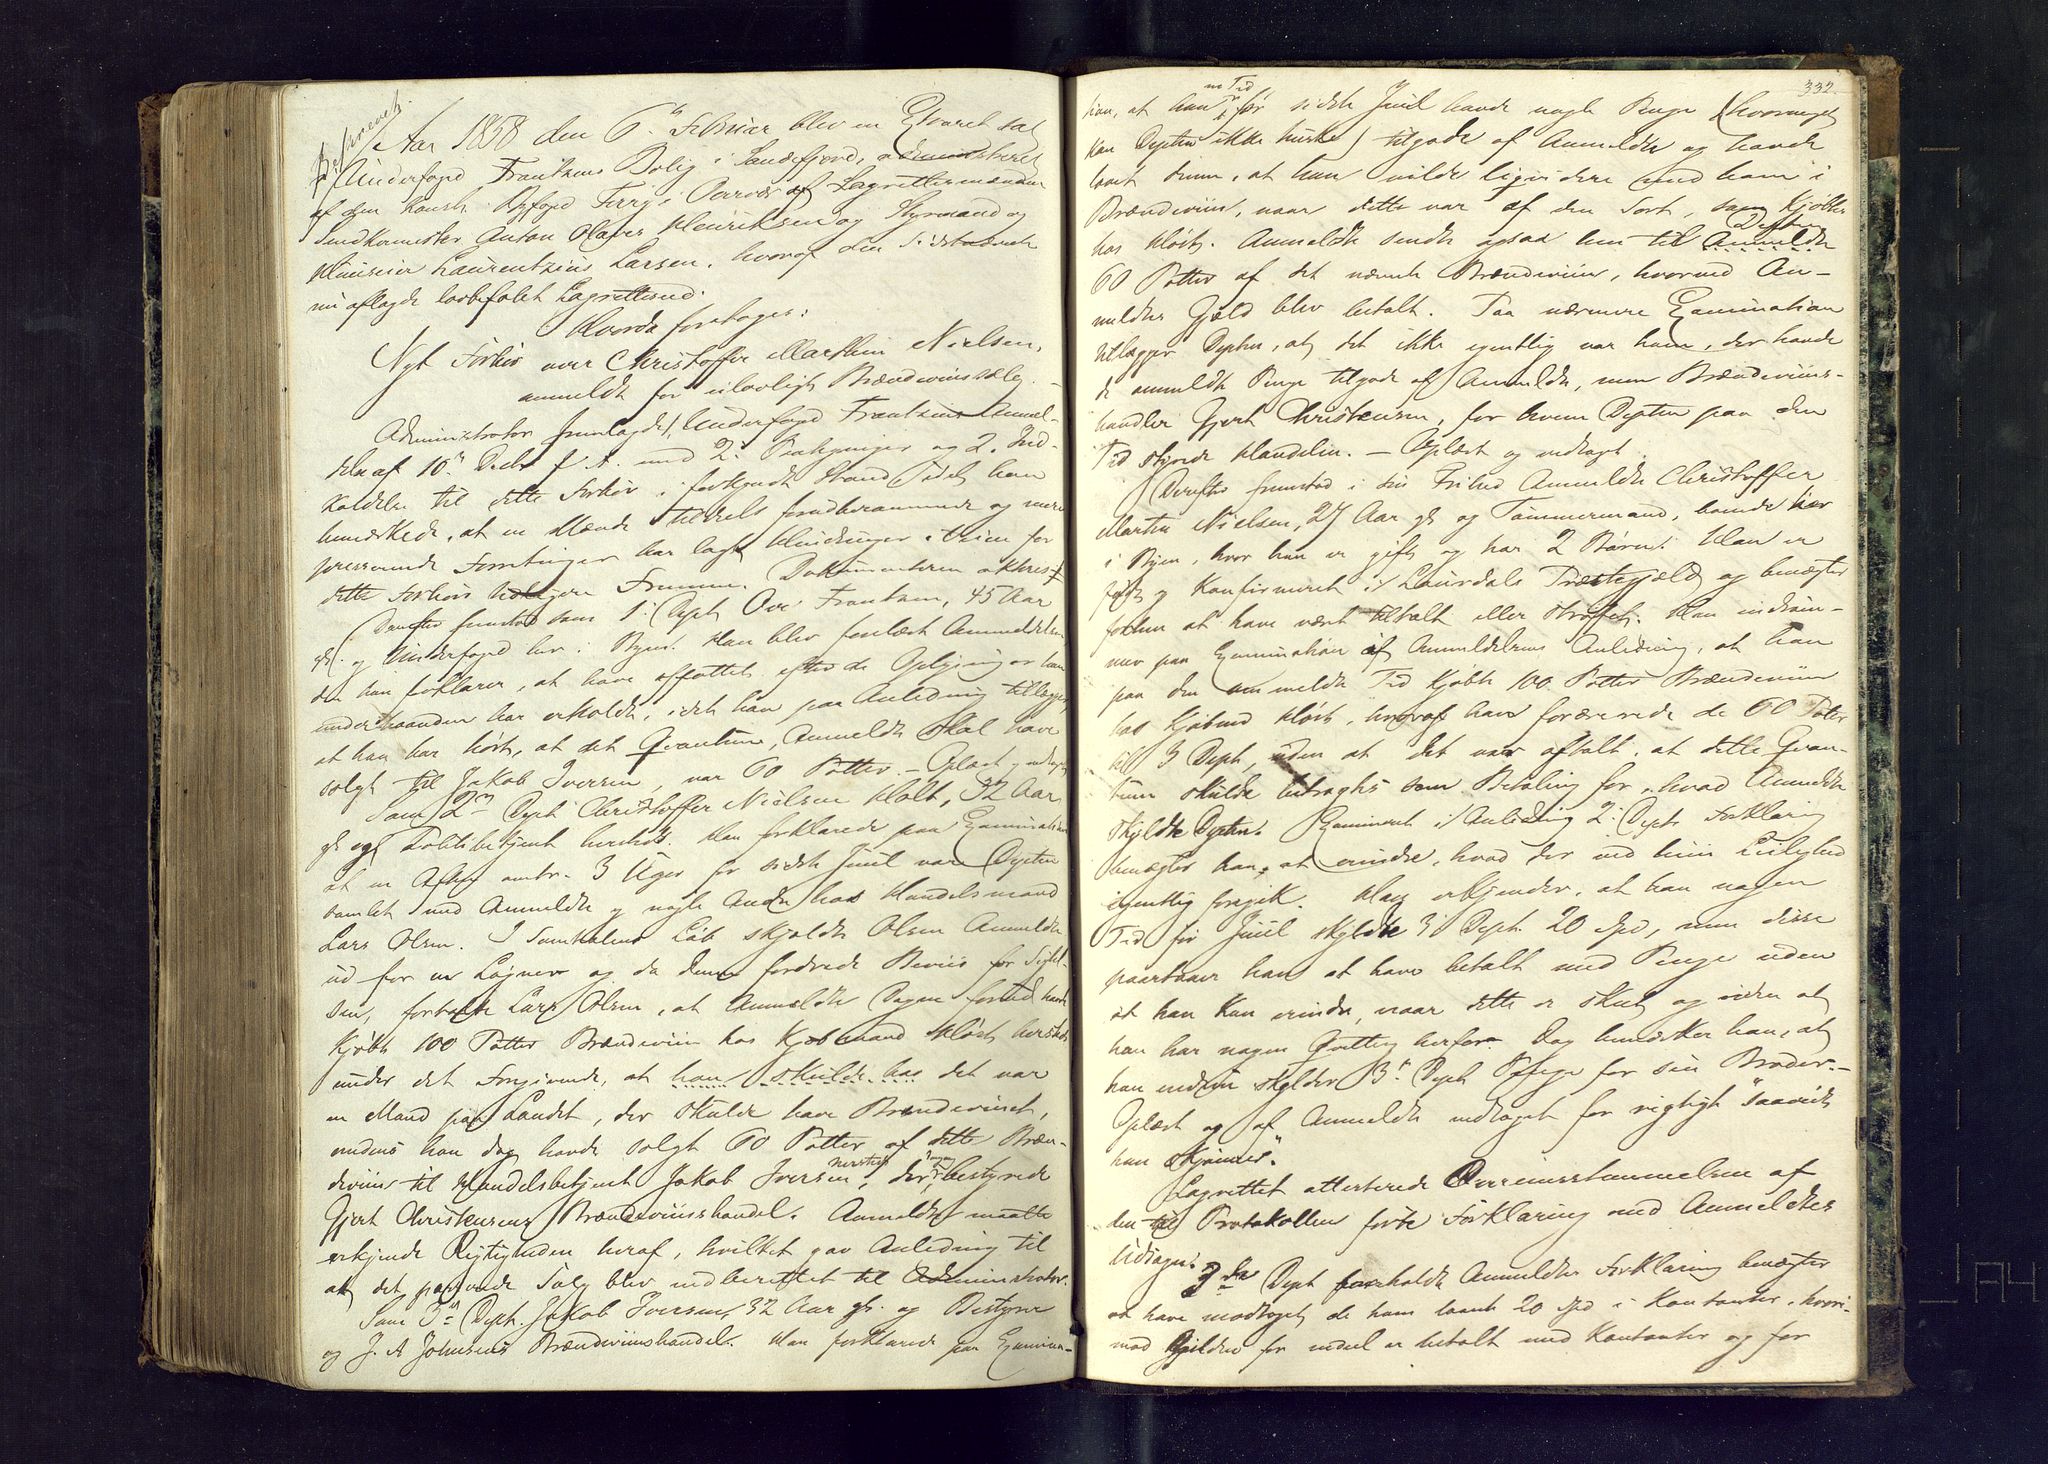 Beskrevet
Aar 1858 den 6te Februar blev en Exraret sat
i Underfoged Frantzens Bolig i Sandefjord, administreret
af den konst. Byfoged Ferrj i Overvær af Lagrettesmændene
Smedkermester Anton Olaves Henriksen og Styrmand og
Huuseier Laurentzius Larsen, hvoraf den sidstnævnte
nu aflagde lovbefalet Lagrettesed.
Hvorda foretoges:
Nyt Forhør over Christoffer Marthin Nielsen,
anmeldt for ulovligt Brændeviinssalg. —
Administrator fremlagde Underfoged Frantzens Anmel-
delse af 10de Decbr f. A. med 2 Paategninger og 2 Ind-
kaldelse til dette Forhør i forkyndt Stand, idet han
bemærkede, at en Mænde tildels forudberammede og mere
presserende Forretninger har lagt Hindringer i Veien for
dette Forhørs tidligere Fremme. Dokumenterne akteres
Derefter fremstod som 1ste Dept Ove Frantzen, 45 Aar
gl. og Underfoged her i Byen. Han blev forelæst Anmeldelsen,
den han forklarer, at have affattet efter de Oplysninger han
underhaanden har erholdt, idet han paa Anledning tillægger,
at han har hørt, at det Qvantum, Anmeldte skal have
solgt til Jakob Iversen, var 60 Potter. — Oplæst og vedtaget
Som 2den Dept Christoffer Nielsen Holt, 32 Aar
gl. og Politibetjent hersteds. Han forklarede paa Examination
at en Aften omtr. 3 Uger før sidste Juul var Depten
samlet med Anmeldte og nogle Andre hos Handelsmand
Lars Olsen. I Samtalens Løb skjeldte Olsen Anmeldte
ud for en Løgner og da denne fordrede Beviis for Sigtel-
sen, fortalte Lars Olsen, at Anmeldte Dagen forud havde
kjøbt 100 Potter Brændeviin hos Kjøbmand Kløst hersteds
under det Foregivende, at han skulde has det var
en Mand paa Landet, der skulde have Brændevinet,
medens han dog havde solgt 60 Potter af dette Bræn-
deviin til Handelsbetjent Jakob Iversen hersteds, der bestyrede
Gjert Christensens Brændeviinshandel. Anmeldte maatte
erkjende Rigtigheden heraf, hvilket gav Anledning til
at det passerede Salg blev indberettet til Administrator.
Som 3die Dept. Jakob Iversen, 32 Aar gl. og Bestyrer
og J. A Johnsens Brændeviinshandel. Han forklarede paa Examina-
332.
tion, at han en Tid før sidste Juul havde nogle Penge (hvormeget
kan Depten ikke huske) tilgode af Anmeldte og havde
lovet denne, at han vilde liqvidere med ham i
Brændeviin, naar dette var af den Sort, som kjøbtes
hos Kløst. Anmeldte sendte ogsaa hen til Anmeldte Depten
60 Potter af det nævnte Brændeviin, hvormed An-
meldtes Gjeld blev betalt. Paa nærmere Examination
tillægger Depten, at det ikke egentlig var ham, der havde
de anmeldte Penge tilgode af Anmeldte, men Brændeviins-
handler Gjert Christensen, for hvem Depten paa den
Tid styrede Handelen. — Oplæst og vedtaget.
Derefter fremstod i sin Frihed Anmeldte Christoffer
Martin Nielsen, 27 Aar gl. og Tømmermand, boende her
i Byen, hvor han er gift og har 2 Børn. Han er
født og konfirmeret i Laurdals Præstegjæld og benægter
forhen at have været tiltalt eller straffet. Han indrøm-
mer paa Examination af Anmeldelsens Anledning, at han
paa den anmeldte Tid kjøbte 100 Potter Brændeviin
hos Kjøbmd Kløst, hvoraf han forærerede de 60 Potter
til 3 Dept, uden at det var aftalt, at dette Qvan-
tum skulde betragtes som Betaling for, hvad Anmeldte
skyldte Depten. Examineret i Anledning 2. Depts Forklaring
benægter han, at erindre, hvad der ved hiin Leilighed
egentlig foregik. Han erkjender, at han nogen
Tid før Juul skyldte 3 Dept. 20 Spd, men disse
paastaaer han at have betalt med Penge uden
at han kan erindre, naar dette er skeet og uden at
han har nogen Qvittering herfor. Dog bemærker han, at
han endnu skylder 3die Dept Penge for sin Broder. —
Oplæst og af Anmeldte vedtaget for rigtigt "saavidt
han skjønner".
Lagrettet attesterede Overeensstemmelsen af
den til Protokollen førte Forklaring med Anmeldtes
Udsagn.
3die Dept foreholdt Anmeldtes Forklaring benægter
at have modtaget de ham laante 20 Spd i Kontanter, hvori-
mod Gjælden for endeel er betalt med Kontanter og for